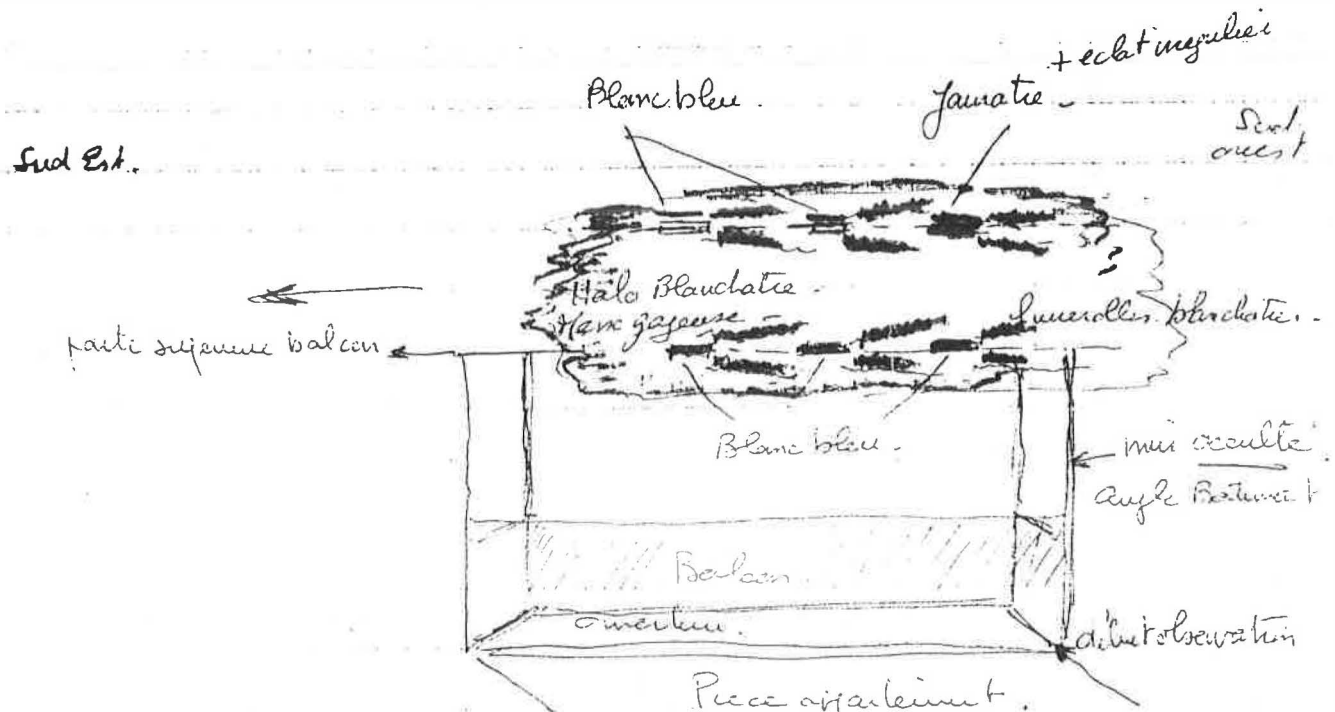 + éclat irrégulier
Blanc bleu.
Jaunatre -
Sud Est.
Sud
ouest
Halo Blanchatre -
Masse gazeuse -
?
fumerolles blanchatres -
partie supérieure balcon
Blanc bleu -
mur occulté
angle Batiment
Balcon
ouverture.
début observation
Piece appartement.